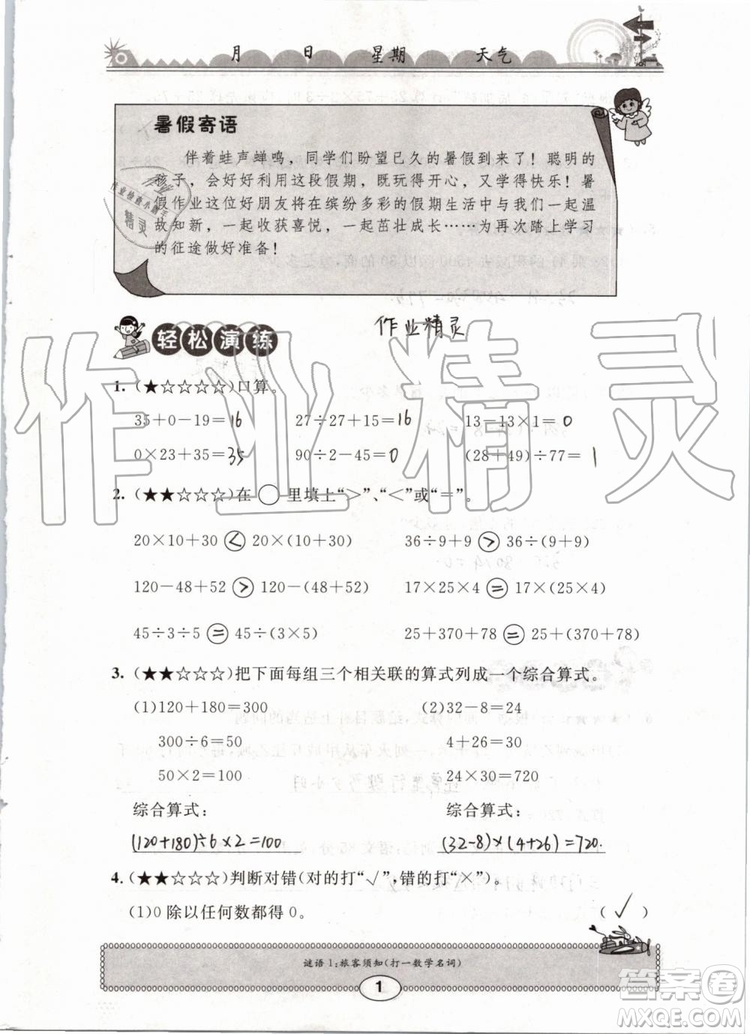 月 日 星期 天气
暑假寄语
伴着蛙声蝉鸣,同学们盼望已久的暑假来到啦!聪明的
孩子,会好好利用这段假期,既玩得开心,又学得快乐!暑
假作业这位好朋友将在缤纷多彩的假期生活中与你一起温
故知新,一起收获喜悦,一起茁壮成长……为再次踏上学习
的征途做好准备!
作业检查小帮手
精灵
轻松演练
作业精灵
作业精灵
1.(★☆☆☆☆)口算。
35+0-19=16 27÷27+15=16 13-13×1=0
0×23+35=35 90÷2-45=0 (28+49)÷77=1
2.(★★☆☆☆)在○里填上“>”、“<”或“=”。
20×10+30<20×(10+30) 36÷9+9>36÷(9+9)
120-48+52>120-(48+52) 17×25×4=17×(25×4)
45÷3÷5=45÷(3×5) 25+370+78=25+(370+78)
3.(★★☆☆☆)把下面每组三个相关联的算式列成一个综合算式。
(1)120+180=300 (2)32-8=24
300÷6=50 4+26=30
50×2=100 24×30=720
综合算式: 综合算式:
(120+180)÷6×2=100 (32-8)×(4+26)=720.
4.(★★☆☆☆)判断对错(对的打“√”,错的打“×”)。
(1)0除以任何数都得0。 (√)
谜语1:旅客须知(打一数学名词)
1
答案圈
MXQE.COM